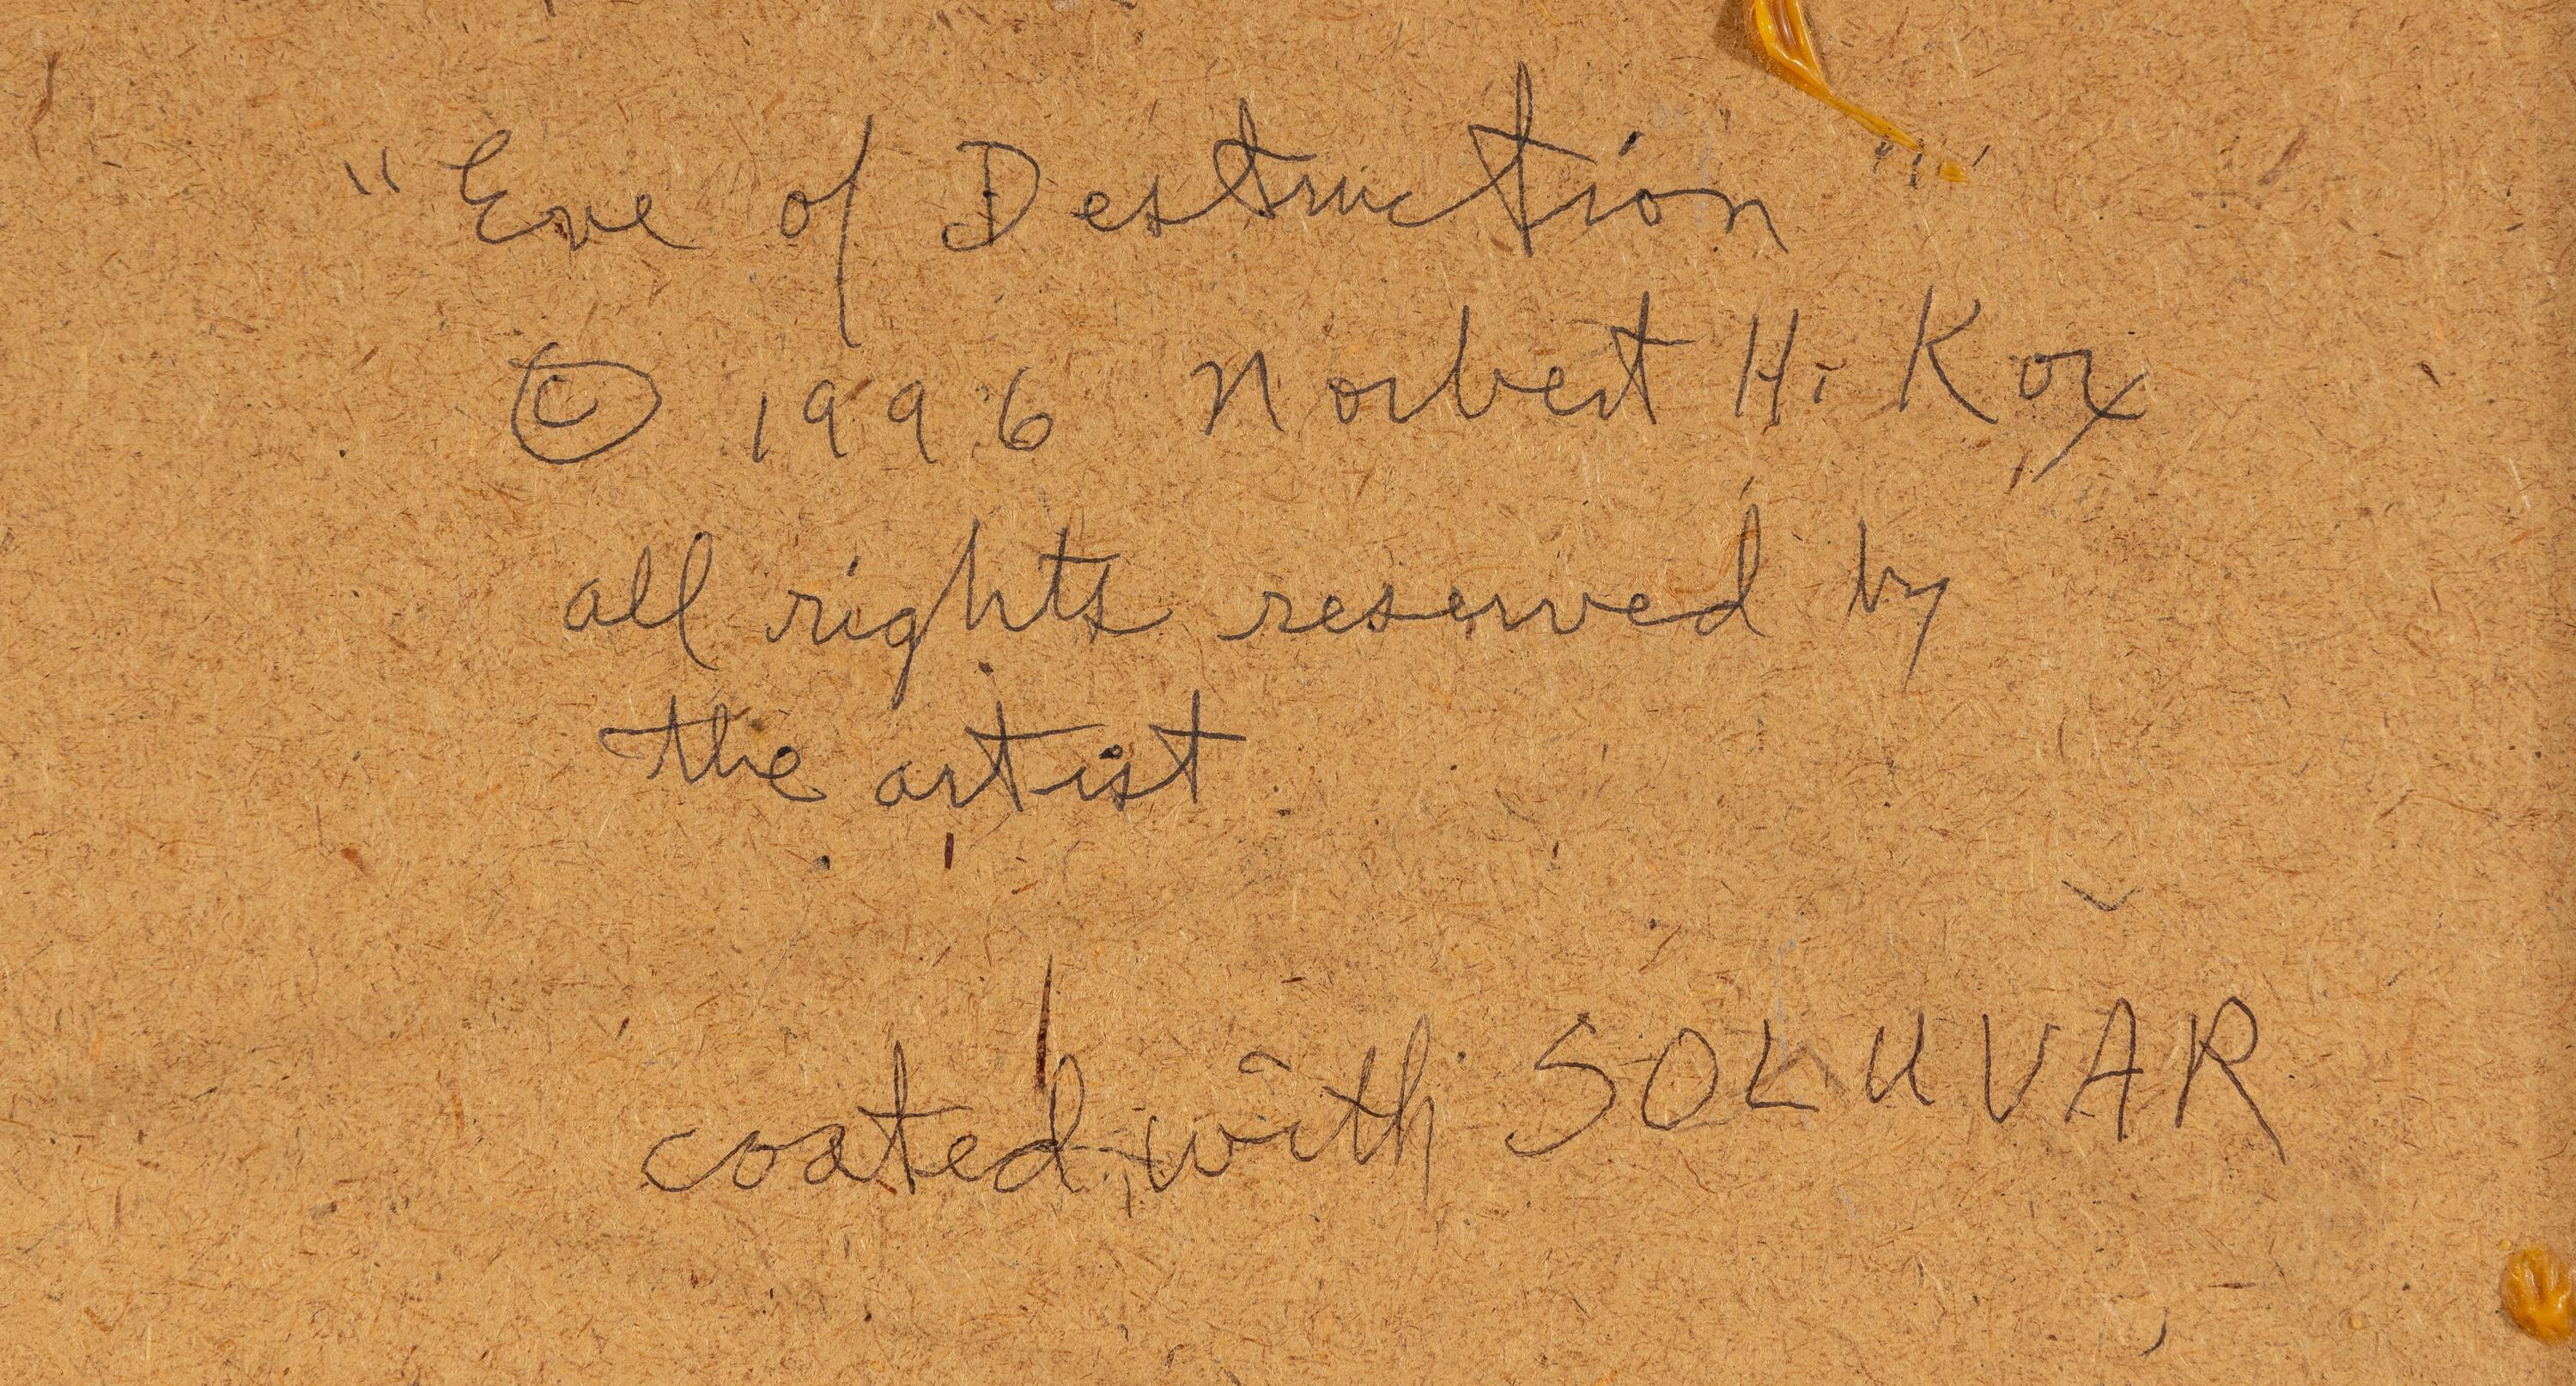 "Eve of Destruction"
© 1996 Norbert H. Kox
all rights reserved by
the artist
coated with SOLUVAR